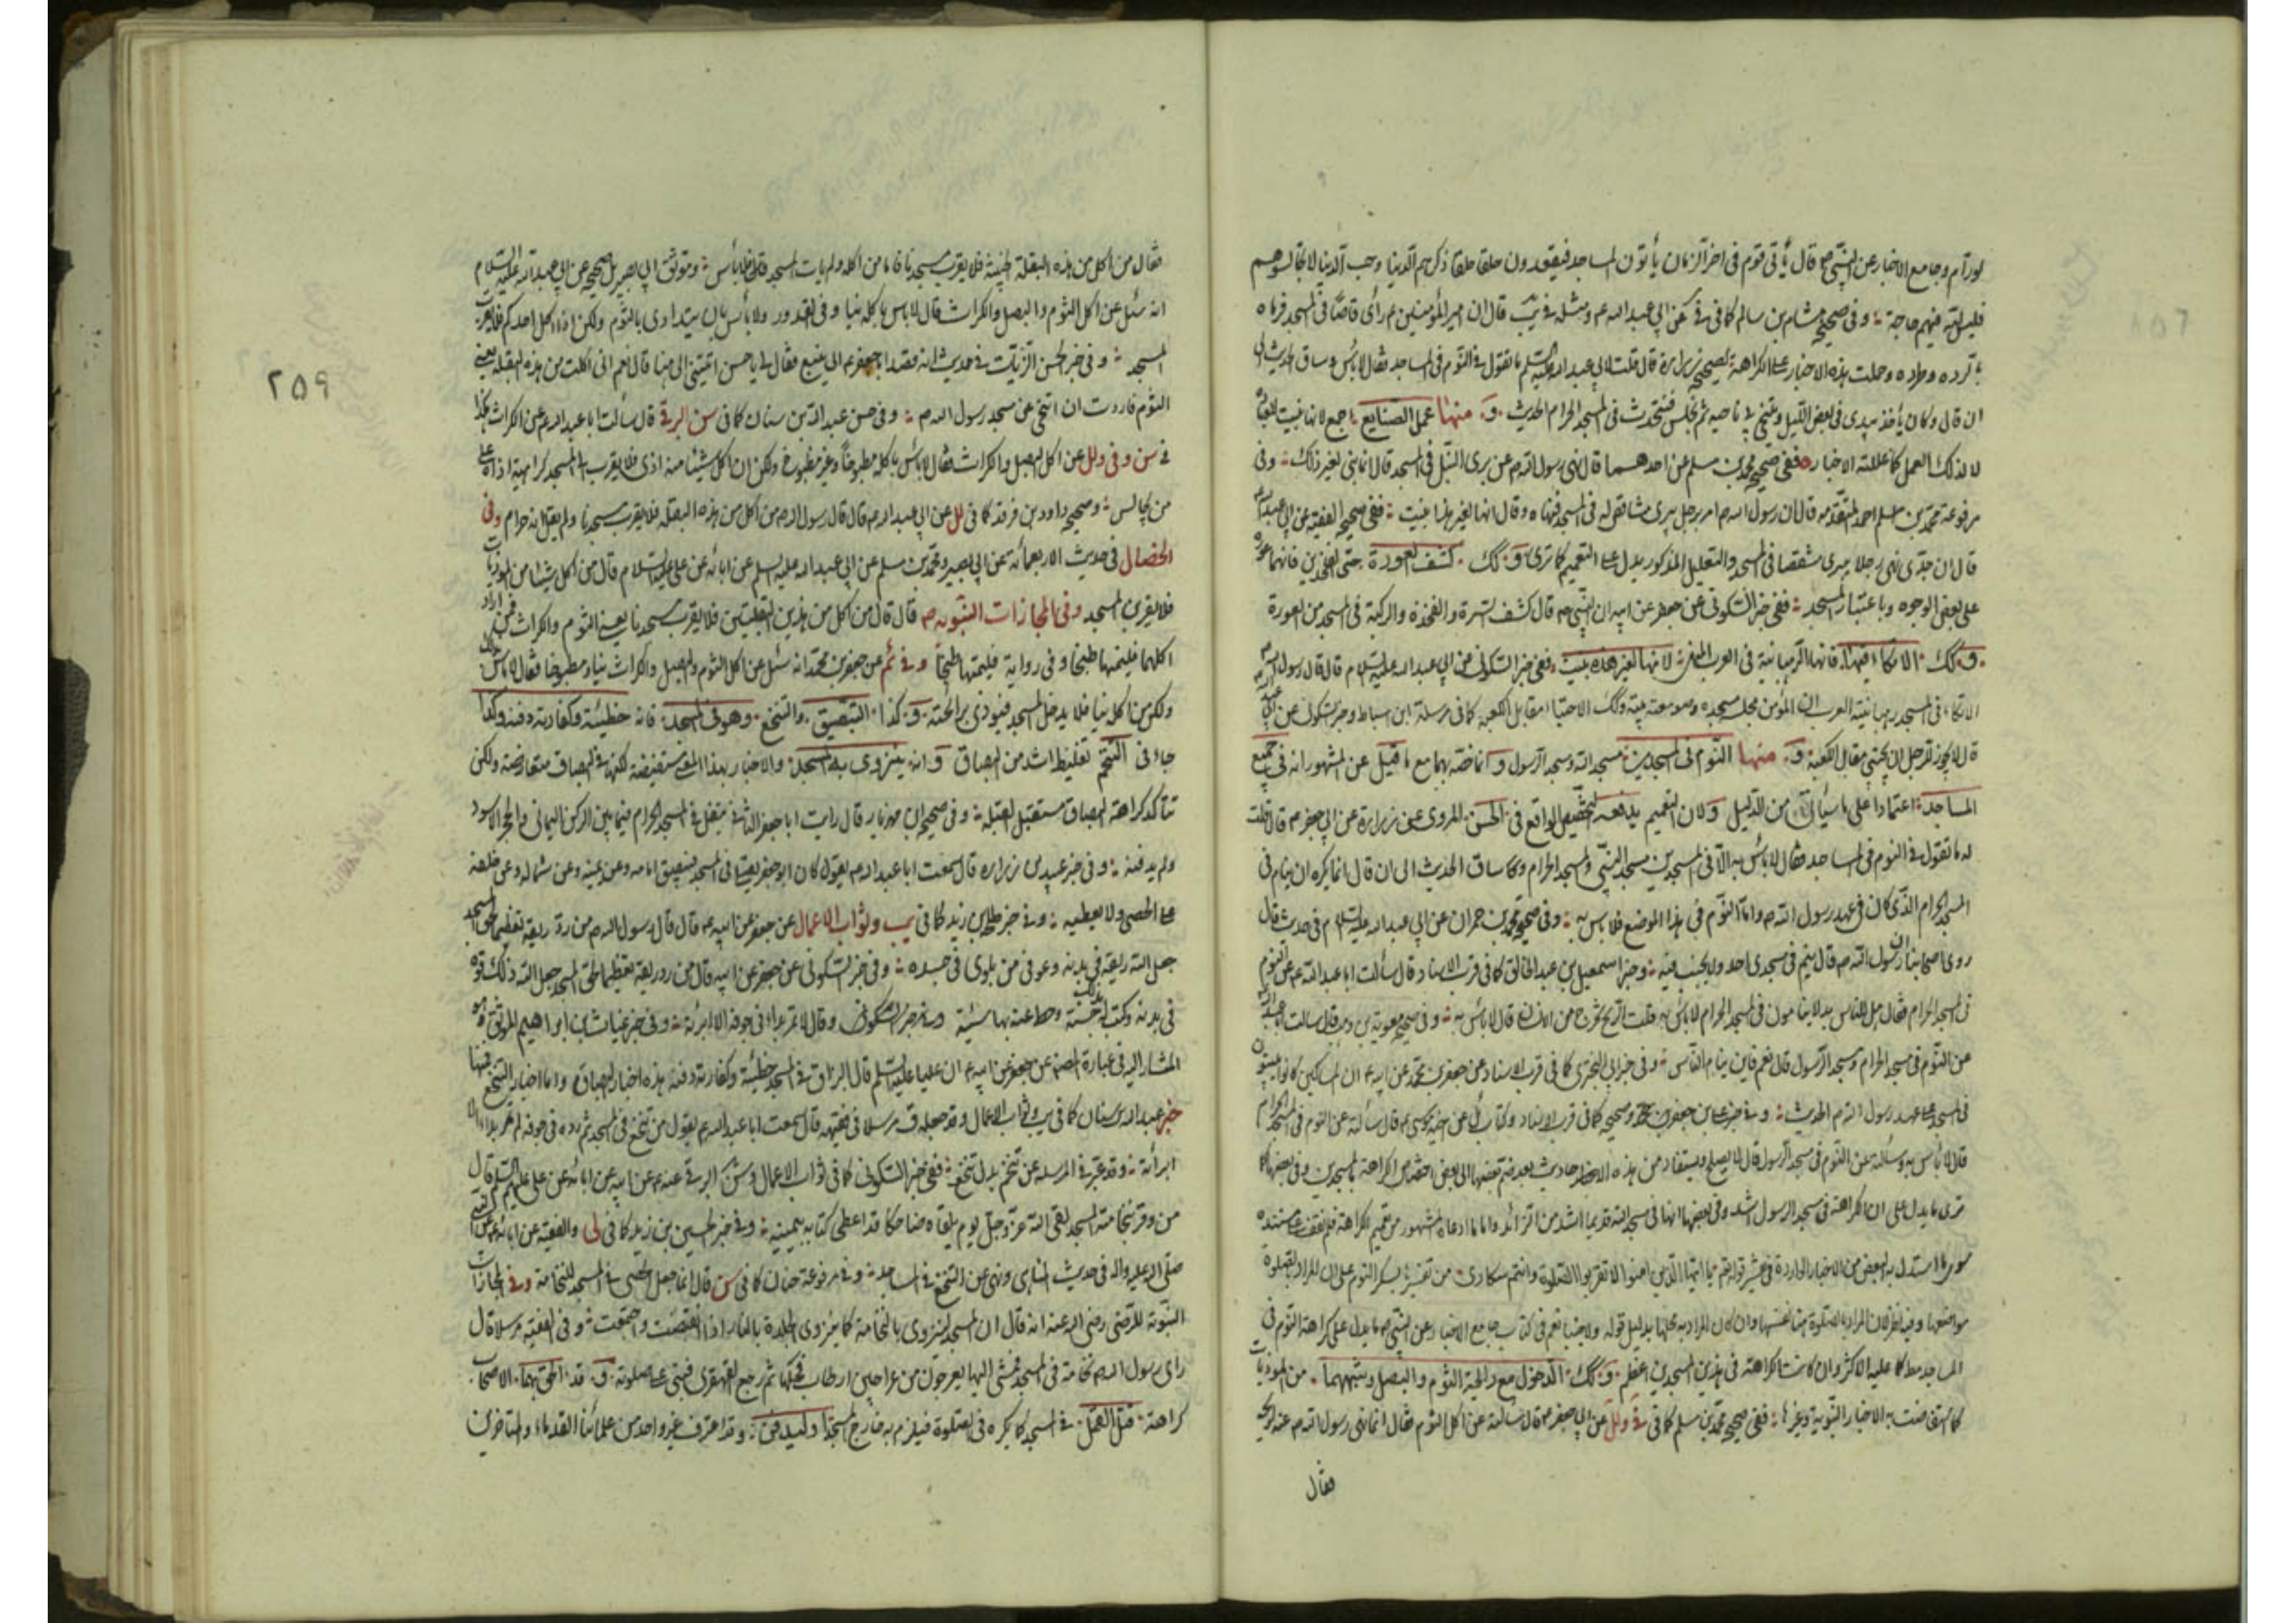 لورام وجامع الاخبار عن النبي ص قال يأتي قوم في اخر الزمان يأتون المساجد فيقعدون حلقا حلقا ذكرهم الدنيا وحب الدنيا لا تجالسوهم
فليس لله فيهم حاجة وفي صحيح هشام بن سالم كما في عن ابي عبد الله ع ومثله في يب قال ان امير المؤمنين ع رأى قاصا في المسجد فضربه
بالدرة وطرده وحملت هذه الاخبار على الكراهة لصحيح زرارة قال قلت لابي عبد الله عليه السلم ما تقول في النوم في المساجد فقال لا بأس وساق الحديث الى
ان قال وكان يأخذ بيدي في بعض الليل فيتنحى ناحية ثم نجلس فنتحدث في المسجد الحرام الحديث و منها عمل الصنايع اجمع لانها
لا لذلك العمل كما عللته الاخبار ففي صحيح محمد بن مسلم عن احدهما قال نهى رسول الله ص عن بري النبل في المسجد قال انما بني لغير ذلك وفي
مرفوعة محمد بن احمد المتقدمة قال ان رسول الله ص مر برجل يبري مشاقص له في المسجد فنهاه وقال انها لغير هذا بنيت ففي صحيح الفقيه عن ابي عبد الله
قال ان جدي نهى رجلا يبري مشقصا في المسجد والتعليل المذكور يدل على التعميم كما ترى و كك كشف العورة حتى الفخذين فانهما عورة
على بعض الوجوه وباعتبار المسجد ففي خبر السكوني عن جعفر عن ابيه ان النبي ص قال كشف السرة والفخذ والركبة في المسجد من العورة
و كك الاتكاء فيها فانها الرهبانية في العرب لانها لغير هذه بنيت ففي خبر السكوني عن ابي عبد الله عليه السلام قال قال رسول الله ص
الاتكاء في المسجد رهبانية العرب ان المؤمن مجلسه مسجده وصومعته بيته وكك الاحتباء مقابل الكعبة كما في مرسلة ابن اسباط وخبر السكوني عن ابي عبد الله
قال لا يجوز للرجل ان يحتبي مقابل الكعبة و منها النوم في المسجدين مسجد الله ومسجد الرسول مع ما قيل عن المشهور انه في جميع
المساجد اعتمادا على ما سيأتي من الدليل ولان التعميم يدفعه التخصيص الواقع في الحسن المروي عن زرارة عن ابي جعفر ع قال قلت
له ما تقول في النوم في المساجد فقال لا بأس به الا في المسجدين مسجد النبي والمسجد الحرام وساق الحديث الى ان قال انما يكره ان ينام في
المسجد الحرام الذي كان في عهد رسول الله ص واما النوم في هذا الموضع فلا بأس به وفي صحيح محمد بن حمران عن ابي عبد الله عليه السلام في حديث قال
روى اصحابنا ان رسول الله ص قال لا ينام في مسجدي احد ولا يجنب فيه وخبر اسمعيل بن عبد الخالق كما في قرب الاسناد قال سألت ابا عبد الله ع عن النوم
في المسجد الحرام فقال هل للناس بد ان يناموا في المسجد الحرام لا بأس به قلت الريح تخرج من الانسان قال لا بأس به وفي صحيح معوية بن وهب قال سألت ابا عبد الله
عن النوم في مسجد الحرام ومسجد الرسول قال نعم فاين ينام الناس وفي خبر ابي البختري كما في قرب الاسناد عن جعفر بن محمد عن ابيه ان المساكين كانوا يبيتون
في المسجد على عهد رسول الله ص الحديث وفي خبر علي بن جعفر كما في قرب الاسناد وكتابه عن اخيه موسى ع قال سألته عن النوم في المسجد الحرام
قال لا بأس به وسألته عن النوم في مسجد الرسول قال لا يصلح ويستفاد من هذه الاحاديث بعد ضم بعضها الى بعض اختصاص الكراهة بالمسجدين وفي بعضها كما
ترى ما يدل على ان الكراهة في مسجد الرسول اشد وفي بعضها انها في مسجد الله قديما اشد من الزائد واما ما ادعاه المشهور من تعميم الكراهة فلم نقف على مستنده
سوى ما استدل به البعض من الاخبار الواردة في تفسير قوله تعالى يا ايها الذين امنوا لا تقربوا الصلوة وانتم سكارى من تفسير السكر بسكر النوم على ان المراد بالصلوة
مواضعها وفيه نظر لان المراد بالصلوة هنا نفسها وان كان المراد به محلها بدليل قوله ولا جنبا نعم في كتاب جامع الاخبار عن النبي ص ما يدل على كراهة النوم في
المساجد مطلقا كما عليه الاكثر وان كانت الكراهة في هذين المسجدين اعظم و كك الدخول مع رائحة الثوم والبصل وشبههما من الموذيات
كما استفاضت به الاخبار النبوية وغيرها ففي صحيح محمد بن مسلم كما في في ولل عن ابي جعفر ع قال سألته عن اكل الثوم فقال انما نهى رسول الله ص عنه لريحه
فقال
فقال من اكل من هذه البقلة الخبيثة فلا يقرب مسجدنا فاما من اكله ولم يأت المسجد فلا بأس وموثق ابي بصير بل صحيحه عن ابي عبد الله عليه السلام
انه سئل عن اكل الثوم والبصل والكراث فقال لا بأس باكله نيا وفي القدور ولا بأس بان يتداوى بالثوم ولكن اذا اكل احدكم فلا يقرب
المسجد وفي خبر الحسن الزيات في حديث انه قصد ابا جعفر ع الى ينبع فقال يا حسن اتيتني الى هنا قال نعم اني اكلت من هذه البقلة يعني
الثوم فاردت ان اتنحى عن مسجد رسول الله ص وفي حسن عبد الله بن سنان كما في سن البرقي قال سألت ابا عبد الله ع عن الكراث
في سن وفي ولل عن اكل البصل والكراث فقال لا بأس باكله مطبوخا وغير مطبوخ ولكن ان اكل شيئا منه اذى فلا يقرب المسجد كراهية اذاه على
من يجالس وصحيح داود بن فرقد كما في لل عن ابي عبد الله ع قال قال رسول الله ص من اكل من هذه البقلة فلا يقرب مسجدنا ولم يقل انه حرام وفي
الخصال في حديث الاربعمائة عن ابي بصير ومحمد بن مسلم عن ابي عبد الله عليه السلم عن ابائه عن علي عليه السلام قال من اكل شيئا من الموذيات
فلا يقربن المسجد وفي المجازات النبوية ص قال قال من اكل من هذين البقلتين فلا يقرب مسجدنا يعني الثوم والكراث فمن اراد
اكلهما فليمتهما طبخا وفي رواية فليمتها طبخا وفي ئم عن جعفر بن محمد انه سئل عن اكل الثوم والبصل والكراث نيا ومطبوخا فقال لا بأس
ولكن من اكله نيا فلا يدخل المسجد فيوذي برائحته و كذا التبصيق والتنخع وهو في المسجد فانه خطيئة وكفارته دفنه وكذا
جاء في التنخم تغليظ اشد من البصاق وانه ينزوي به المسجد والاخبار بهذا المعنى مستفيضة لكنها في البصاق متعارضة ولكن
تتأكد كراهة البصاق مستقبل القبلة وفي صحيح ابن مهزيار قال رايت ابا جعفر الثاني يتفل في المسجد الحرام فيما بين الركن اليماني والحجر الاسود
ولم يدفنه وفي خبر عبيد بن زراره قال سمعت ابا عبد الله ع يقول كان ابو جعفر يصلي في المسجد فيبصق امامه وعن يمينه وعن شماله وعن خلفه
على الحصى ولا يغطيه وفي خبر طلحة بن زيد كما في يب وثواب الاعمال عن جعفر عن ابيه ع قال قال رسول الله ص من رد ريقه تعظيما لحق المسجد
جعل الله ريقه صحة في بدنه وعوفي من بلوى في جسده وفي خبر السكوني عن جعفر عن ابيه قال من رد ريقه تعظيما لحق المسجد جعل الله ذلك قوة
في بدنه وكتب له بها حسنة وحط عنه بها سيئة وقال لا تمر بداء في جوفه الا ابرئته وفي خبر غياث بن ابراهيم الموثق وهو
المشار اليه في عبارة المصنف عن جعفر عن ابيه ع ان عليا عليه السلم قال البزاق في المسجد خطيئة وكفارته دفنه هذه اخبار البصاق واما اخبار التنخع فمنها
خبر عبد الله بن سنان كما في يب وثواب الاعمال وقد جعله ق مرسلا في فقيهه قال سمعت ابا عبد الله ع يقول من تنخع في المسجد ثم ردها في جوفه لم تمر بداء الا
ابرأته وقد عبر في المرسله عن تنخم بدل تنخع ففي خبر السكوني كما في ثواب الاعمال وسن البرقي عنه ع عن ابيه عن ابائه عن علي عليهم السلم قال
من وقر بنخامته المسجد لقي الله عز وجل يوم يلقاه ضاحكا قد اعطي كتابه بيمينه وفي خبر الحسين بن زيد كما في لى والفقيه عن ابائه عن النبي
صلى الله عليه واله في حديث المناهي ونهى عن التنخع في المساجد وفي مرفوعة حنان كما في سن قال انما جعل الحصى في المسجد للنخامة وفي المجازات
النبوية للرضي رضي الله عنه انه قال ان المسجد لينزوي بالنخامة كما ينزوي الجلدة بالنار اذا انقبضت واجتمعت وفي الفقيه مرسلا قال
راى رسول الله ص نخامة في المسجد فمشى اليها بعرجون من عراجين ارطاب فحكها ثم رجع القهقرى فبنى على صلوته و قد الحق بهما الاصحاب
كراهة قتل القمل في المسجد كما يكره في الصلوة فيلزم به خارج المسجد او ليدفن وقد اعترف غير واحد من علمائنا القدماء والمتاخرين
۲۵۹